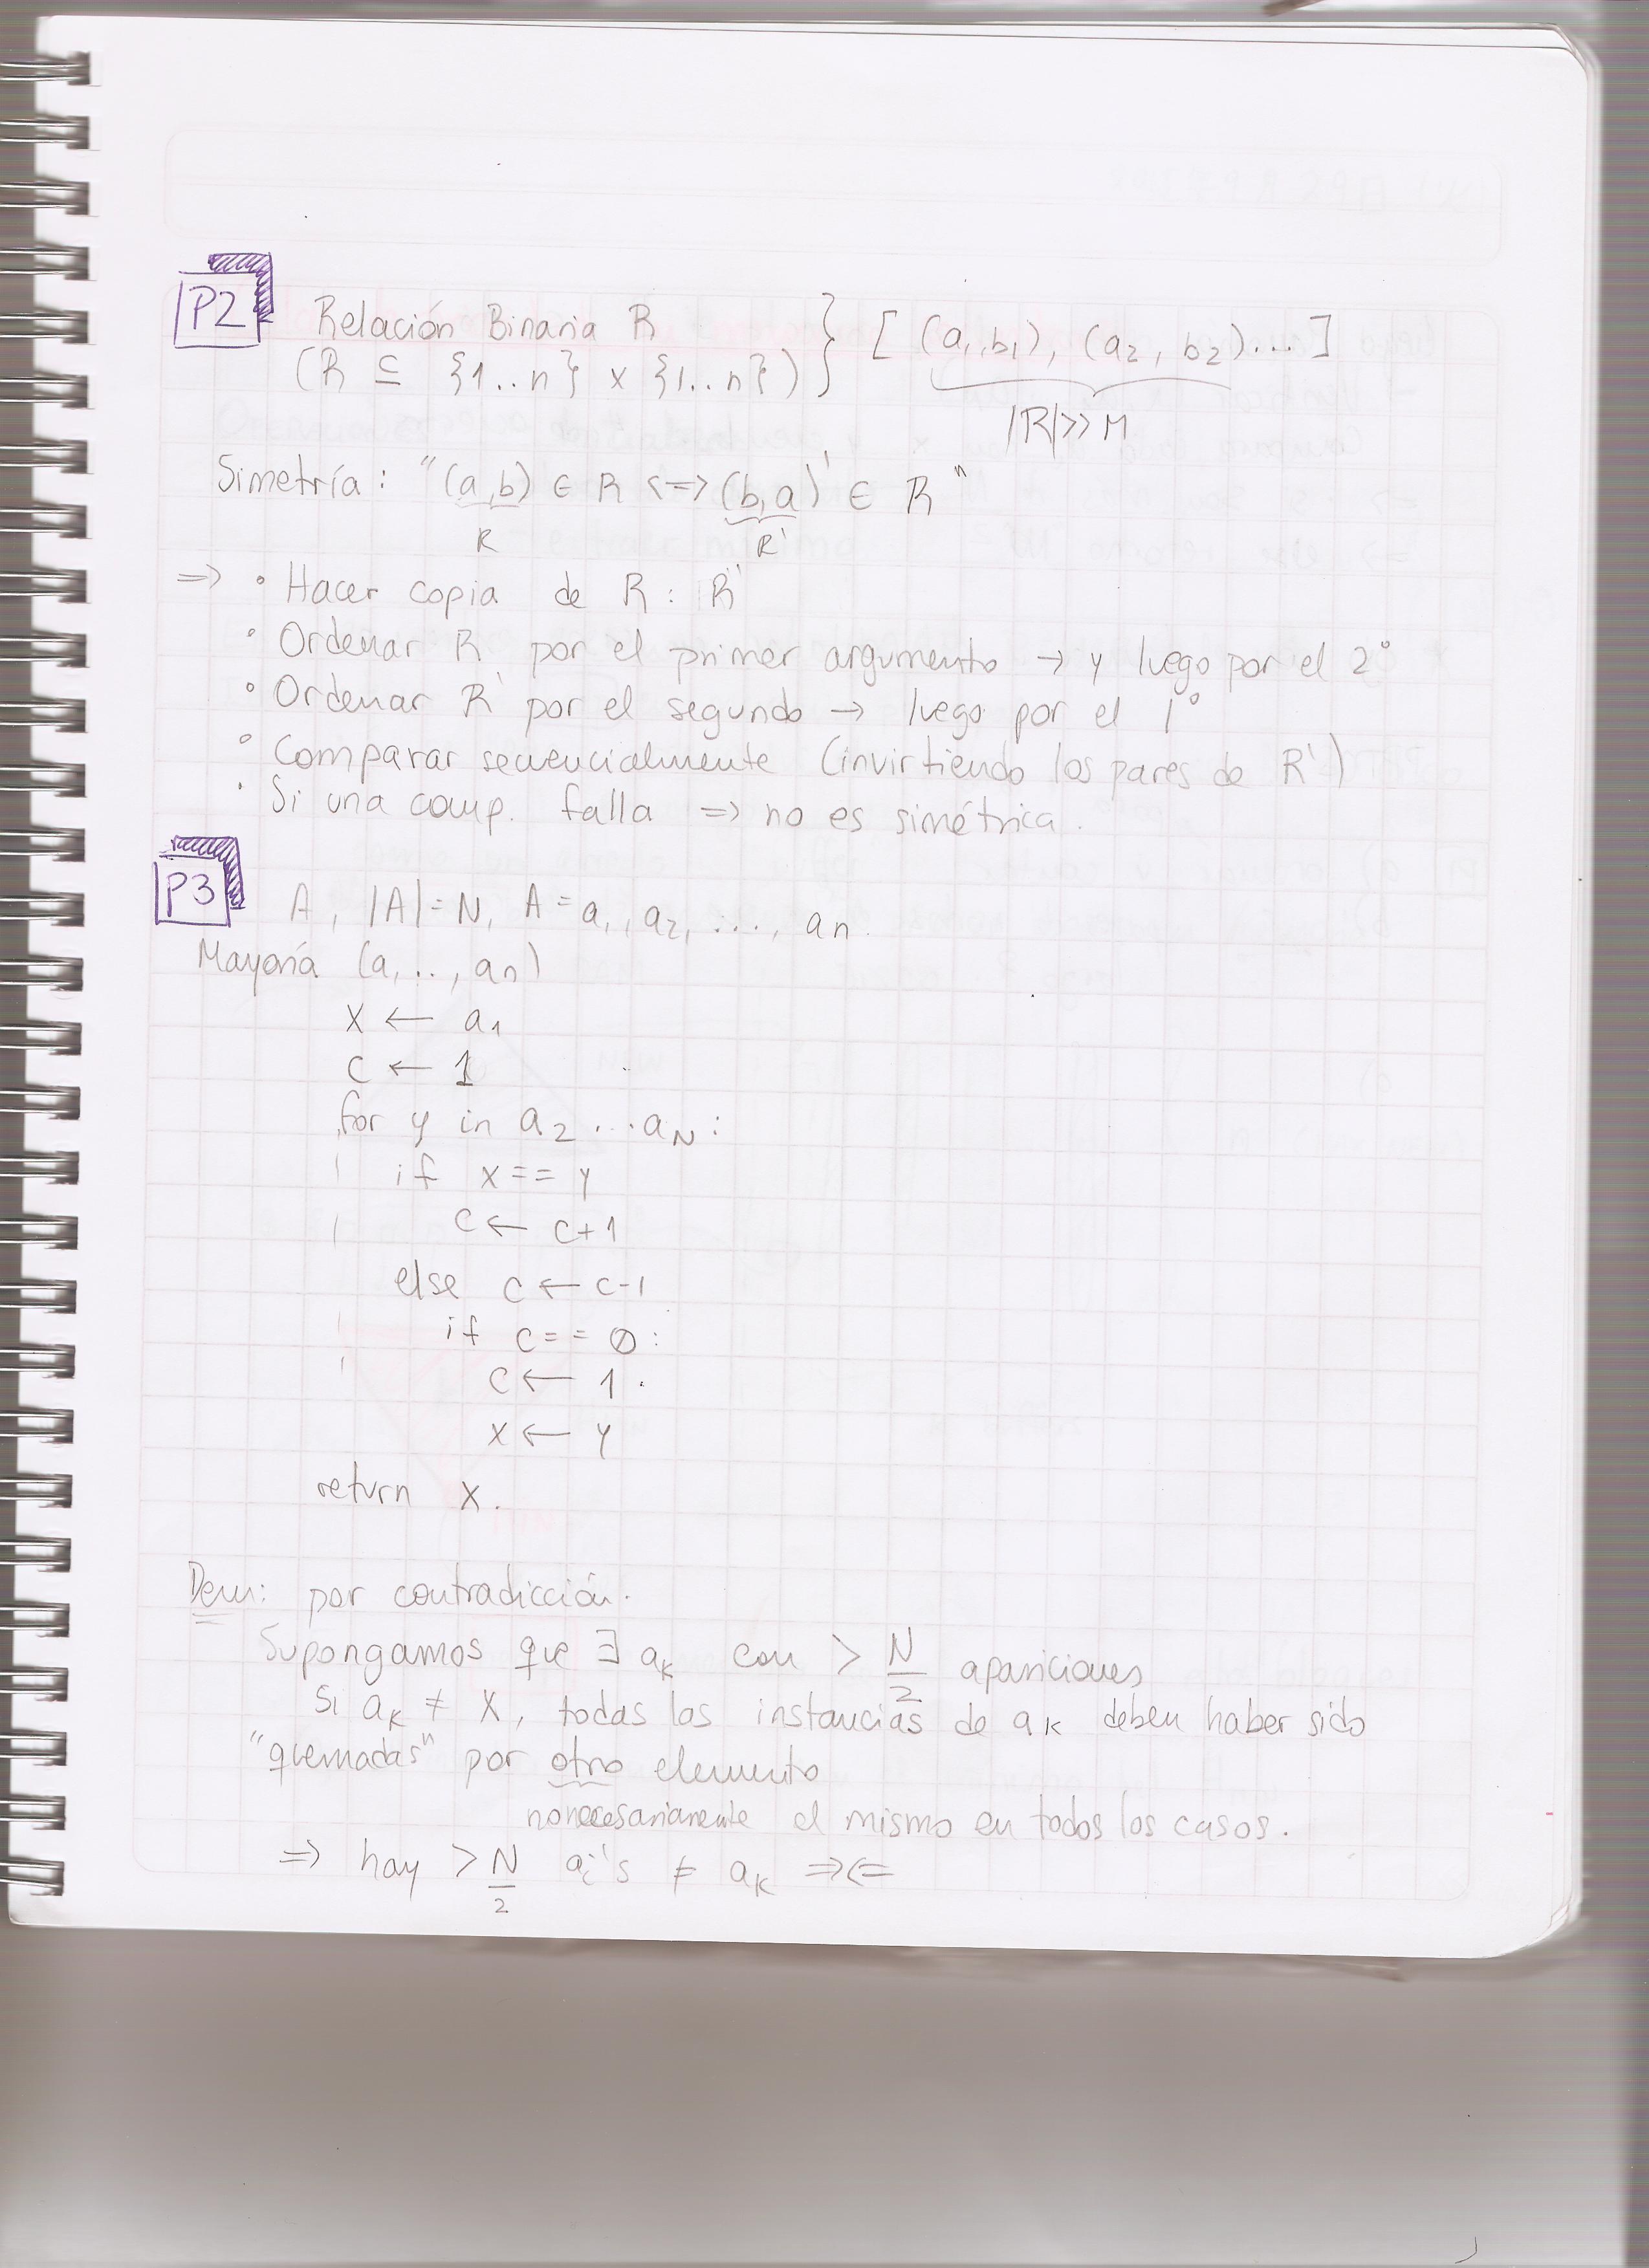 P2 Relación Binaria R } [ (a₁,b₁), (a₂, b₂)... ]
(R ⊆ {1..n} x {1..n})
|R|>>M
Simetría: "(a,b) ∈ R <=> (b,a) ∈ R"
R R'
=> • Hacer copia de R: R'
• Ordenar R por el primer argumento → y luego por el 2°
• Ordenar R' por el segundo → luego por el 1°
• Comparar secuencialmente (invirtiendo los pares de R')
• Si una comp. falla => no es simétrica.
P3 A, |A|=N, A = a₁, a₂, ..., an.
Mayoría (a,.., an)
x ← a₁
c ← 1
for y in a₂...a_N:
if x == y
c ← c+1
else c ← c-1
if c == 0:
c ← 1.
x ← y
return x.
Dem: por contradicción.
Supongamos que ∃ a_k con > N/2 apariciones
Si a_k ≠ x, todas las instancias de a_k deben haber sido
"quemadas" por otro elemento
no necesariamente el mismo en todos los casos.
=> hay > N/2 aᵢ's ≠ a_k =><=